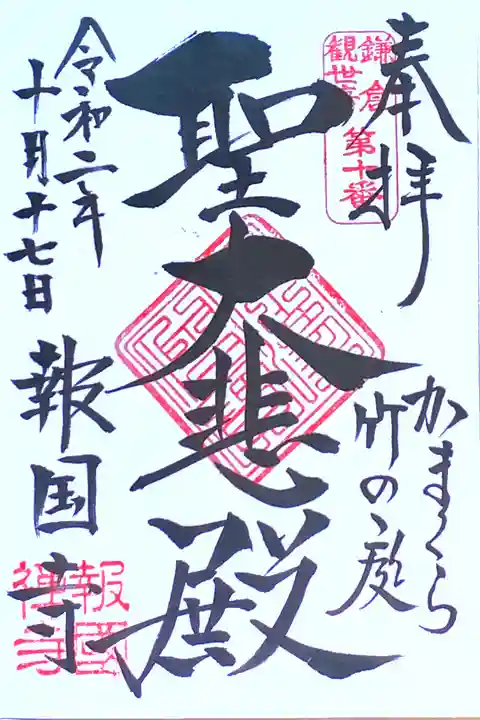 奉拝
鎌倉
観世音
第十番
かまくら
竹の庭
聖大悲殿
令和二年
十月十七日
報国寺
報國
禅寺